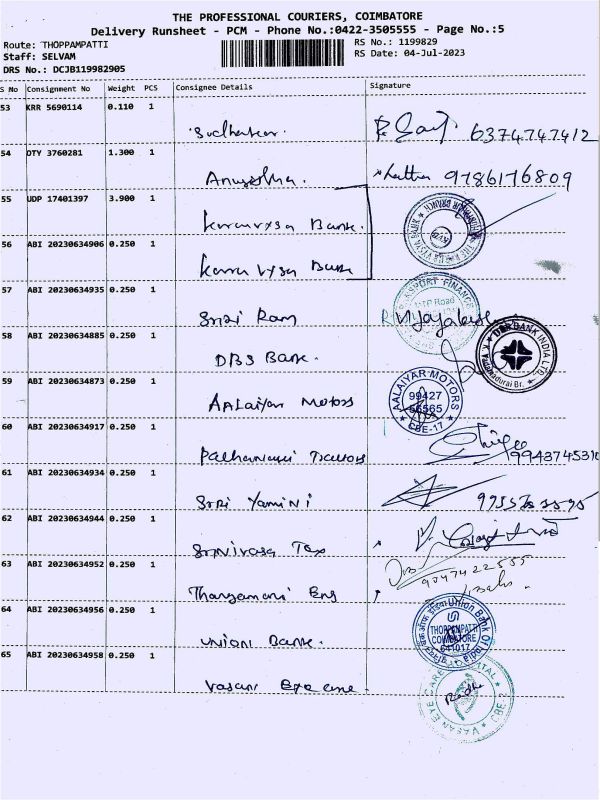 THE PROFESSIONAL COURIERS, COIMBATORE
Delivery Runsheet - PCM - Phone No.:0422-3505555 - Page No.:5
Route: THOPPAMPATTI
RS No.: 1199829
Staff: SELVAM
RS Date: 04-Jul-2023
DRS No.: DCJB119982905
S No Consignment No Weight PCS Consignee Details Signature
53 KRR 5690114 0.110 1
Sudhakar. 6374747412
54 DTY 3760281 1.300 1
Anusha. Latha 9786176809
55 UDP 17401397 3.900 1
Karurvysa Bank.
56 ABI 20230634906 0.250 1
Karur vysa Bank
57 ABI 20230634935 0.250 1
Sri Ram
58 ABI 20230634885 0.250 1
DBS Bank.
DBS BANK INDIA LTD.
59 ABI 20230634873 0.250 1
Aalaiyar Motors
AALAIYAR MOTORS
99427
CBE-17
60 ABI 20230634917 0.250 1
61 ABI 20230634934 0.250 1
Sri Yamini
62 ABI 20230634944 0.250 1
Srinivasa Tex
63 ABI 20230634952 0.250 1
Thangamani Eng
64 ABI 20230634956 0.250 1
Union Bank.
THOPPAMPATTI
COIMBATORE
641017
65 ABI 20230634958 0.250 1
Vasan Eye care
VASAN EYE CARE HOSPITAL